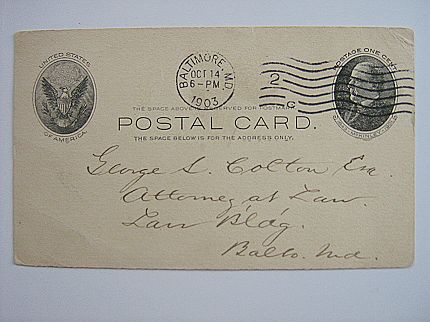 UNITED STATES
OF AMERICA
BALTIMORE, MD.
OCT 14
6-PM
1903
2
C
POSTAGE ONE CENT
MCKINLEY
THE SPACE ABOVE IS RESERVED FOR POSTMARK.
POSTAL CARD.
THE SPACE BELOW IS FOR THE ADDRESS ONLY.
George S. Colton, Esq.
Attorney at Law.
Law Bldg.
Balto. Md.